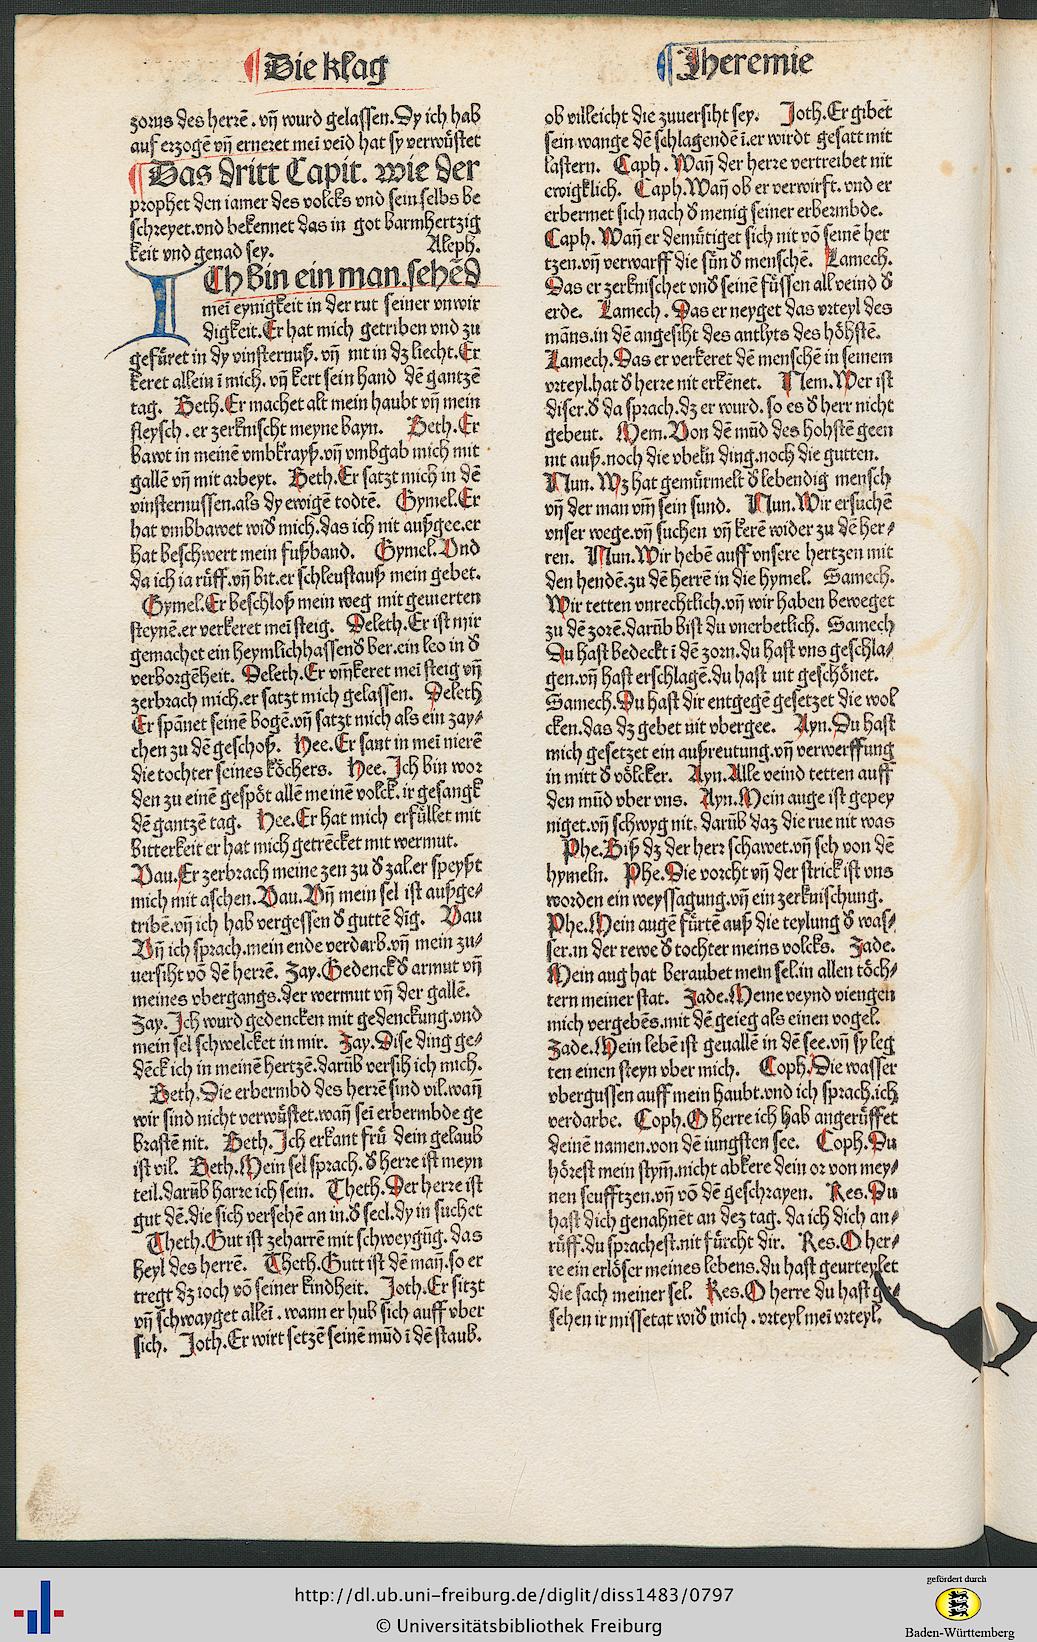 Die klag
Jheremie
zorns des herrē. vn̄ wurd gelassen. Dy ich hab
auf erzogē vn̄ erneret mei veīd hat sy verwüstet
Das dritt Capit. wie der
prophet den iamer des volcks vnd sein selbs be
schreyet. vnd bekennet das in got barmhertzig
keit vnd genad sey. Aleph.
ICh bin ein man. sehēd
mei eynigkeit in der rut seiner vnwir
digkeit. Er hat mich getriben vnd zu
gefüret in dy vinsternuß. vn̄ nit in dz liecht. Er
keret allein ī mich. vn̄ kert sein hand dē gantzē
tag. Beth. Er machet alt mein haubt vn̄ mein
fleysch. er zerknischt meyne bayn. Beth. Er
bawt in meinē vmbkrayß. vn̄ vmbgab mich mit
gallē vn̄ mit arbeyt. Beth. Er satzt mich in dē
vinsternussen. als dy ewigē todtē. Gymel. Er
hat vmbbawet wid mich. das ich nit außgee. er
hat beschwert mein fußband. Gymel. Vnd
da ich ia rüff. vn̄ bit. er schleustauß mein gebet.
Gymel. Er beschloß mein weg mit geuierten
steynē. er verkeret mei steig. Deleth. Er ist mir
gemachet ein heymlichhassend ber. ein leo in d
verborgēheit. Deleth. Er vm̄keret mei steig vn̄
zerbrach mich. er satzt mich gelassen. Deleth
Er spānet seinē bogē. vn̄ satzt mich als ein zay⸗
chen zu dē geschoß. Hee. Er sant in mei nierē
die tochter seines köchers. Hee. Ich bin wor
den zu einē gespöt allē meinē volck. ir gesangk
dē gantzē tag. Hee. Er hat mich erfüllet mit
bitterkeit er hat mich getrēcket mit wermut.
Vau. Er zerbrach meine zen zu d zal. er speyßt
mich mit aschen. Vau. Vn̄ mein sel ist außge⸗
tribē. vn̄ ich hab vergessen d guttē dīg. Vau
Vn̄ ich sprach. mein ende verdarb. vn̄ mein zu⸗
uersiht vō dē herrē. Zay. Gedenck d armut vn̄
meines vbergangs. der wermut vn̄ der gallē.
Zay. Ich wurd gedencken mit gedenckung. vnd
mein sel schwelcket in mir. Zay. Dise ding ge⸗
dēck ich in meinē hertzē. darūb versih ich mich.
Heth. Die erbermbd des herrē sind vil. wan̄
wir sind nicht verwüstet. wan̄ sei erbermbde ge
brastē nit. Heth. Ich erkant frü dein gelaub
ist vil. Heth. Mein sel sprach. d herre ist meyn
teil. darūb harre ich sein. Theth. Der herre ist
gut dē. die sich versehē an in. d seel. dy in suchet
Theth. Gut ist zeharrē mit schweygūg. das
heyl des herrē. Theth. Gutt ist dē man̄. so er
tregt dz ioch vō seiner kindheit. Joth. Er sitzt
vn̄ schwayget allei. wann er hub sich auff vber
sich. Joth. Er wirt setzē seinē mūd ī dē staub.
ob villeicht die zuuersiht sey. Joth. Er gibet
sein wange dē schlagendē ī. er wirdt gesatt mit
lastern. Caph. Wan̄ der herre vertreibet nit
ewigklich. Caph. Wan̄ ob er verwirft. vnd er
erbermet sich nach d menig seiner erbermbde.
Caph. Wan̄ er demütiget sich nit vō seinē her
tzen. vn̄ verwarff die sün d menschē. Lamech.
Das er zerknischet vnd seinē füssen all veind d
erde. Lamech. Das er neyget das vrteyl des
māns. in dē angesiht des antlyts des höhstē.
Lamech. Das er verkeret dē menschē in seinem
vrteyl. hat d herre nit erkēnet. Mem. Wer ist
diser. d da sprach. dz er wurd. so es d herr nicht
gebeut. Mem. Von dē mūd des hohstē geen
nit auß. noch die vbeln ding. noch die gutten.
Nun. Wz hat gemürmelt d lebendig mensch
vn̄ der man vm̄ sein sund. Nun. Wir ersuchē
vnser wege. vn̄ suchen vn̄ kerē wider zu dē her⸗
ren. Nun. Wir hebē auff vnsere hertzen mit
den hendē. zu dē herrē in die hymel. Samech.
Wir tetten vnrechtlich. vn̄ wir haben beweget
zu dē zorē. darūb bist du vnerbetlich. Samech
Du hast bedeckt ī dē zorn. du hast vns geschla⸗
gen. vn̄ hast erschlagē. du hast nit geschönet.
Samech. Du hast dir entgegē gesetzet die wol
cken. das dz gebet nit vbergee. Ayn. Du hast
mich gesetzet ein außreutung. vn̄ verwerffung
in mitt d völcker. Ayn. Alle veind tetten auff
den mūd vber vns. Ayn. Mein auge ist gepey
niget. vn̄ schwyg nit. darūb daz die rue nit was
Phe. Biß dz der herr schawet. vn̄ seh von dē
hymeln. Phe. Die vorcht vn̄ der strick ist vns
worden ein weyssagung. vn̄ ein zerknischung.
Phe. Mein augē fürtē auß die teylung d was⸗
ser. in der rewe d tochter meins volcks. Zade.
Mein aug hat beraubet mein sel. in allen töch⸗
tern meiner stat. Zade. Meine veynd viengen
mich vergebēs. mit dē geieg als einen vogel.
Zade. Mein lebē ist geuallē in dē see. vn̄ sy leg
ten einen steyn vber mich. Coph. Die wasser
vbergussen auff mein haubt. vnd ich sprach. ich
verdarbe. Coph. O herre ich hab angerüffet
deinē namen. von dē iungsten see. Coph. Du
hörest mein stym̄. nicht abkere dein or von mey⸗
nen seufftzen. vn̄ vō dē geschrayen. Res. Du
hast dich genahnēt an dez tag. da ich dich an⸗
rüff. du sprachest. nit fürcht dir. Res. O her⸗
re ein erlöser meines lebens. du hast geurteylet
die sach meiner sel. Res. O herre du hast ge⸗
sehen ir missetat wid mich. vrteyl mei vrteyl.
http://dl.ub.uni-freiburg.de/diglit/diss1483/0797
© Universitätsbibliothek Freiburg
gefördert durch
Baden-Württemberg